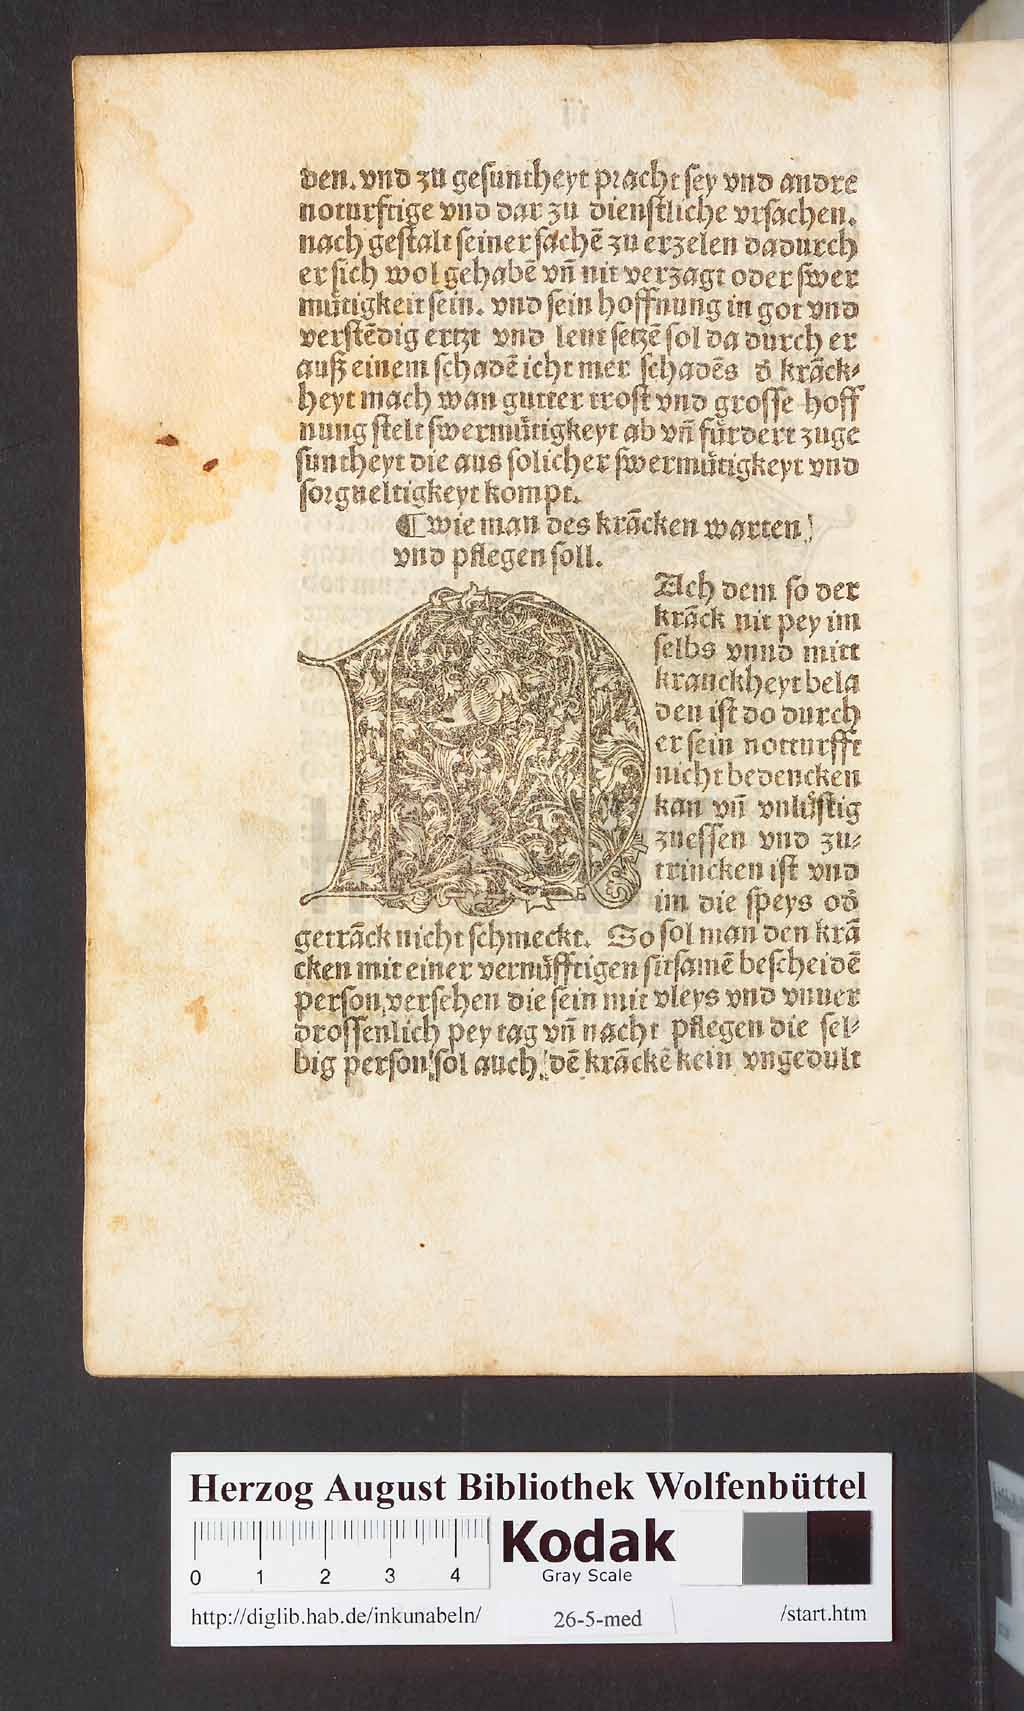 den. vnd zu gesuntheyt pracht sey vnd andre
noturftige vnd dar zu dienstliche vrsachen.
nach gestalt seiner sachē zu erzelen dadurch
er sich wol gehabē vn̄ nit verzagt oder swer
mütigkeit sein. vnd sein hoffnung in got vnd
verstēdig ertzt vnd leut setzē sol da durch er
auß einem schadē icht mer schadēs d̄ krāck⸗
heyt mach wan gutter trost vnd grosse hoff
nung stelt swermütigkeyt ab vn̄ fürdert zuge
suntheyt die aus solicher swermütigkeyt vnd
sorgueltigkeyt kompt.
¶ wie man des krācken warten
vnd pflegen soll.
NAch dem so der
krāck nit pey im
selbs vnnd mitt
kranckheyt bela
den ist do durch
er sein notturfft
nicht bedencken
kan vn̄ vnlüstig
zuessen vnd zu⸗
trincken ist vnd
im die speys od̄
getrāck nicht schmeckt. So sol man den krā
cken mit einer vernüfftigen sitsamē bescheidē
person versehen die sein mit vleys vnd vnuer
drossenlich pey tag vn̄ nacht pflegen die sel⸗
big person sol auch dē krāckē kein vngedult
Herzog August Bibliothek Wolfenbüttel
0 1 2 3 4
Kodak
Gray Scale
http://diglib.hab.de/inkunabeln/ 26-5-med /start.htm